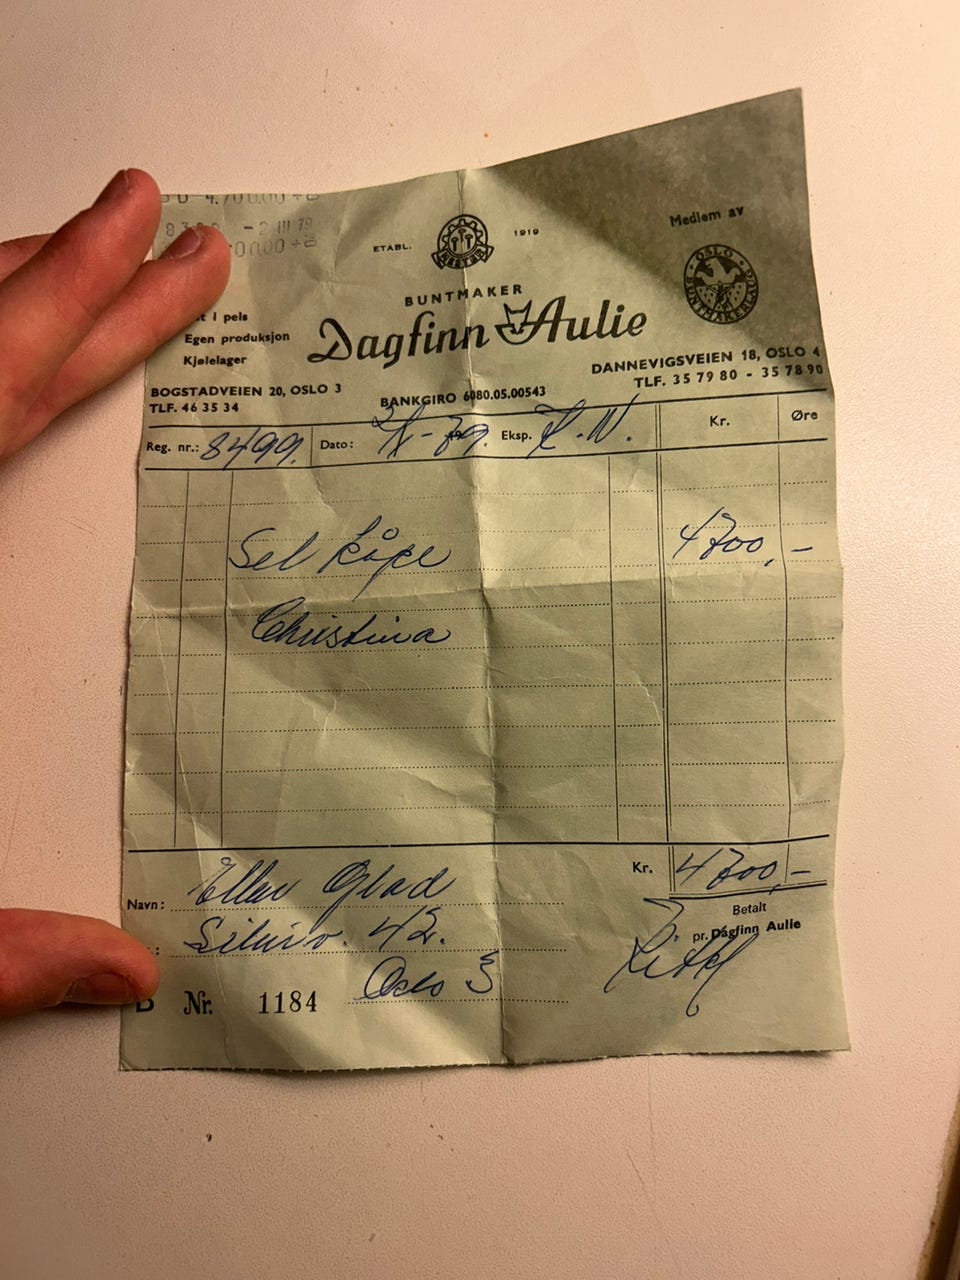 4.700.00 +
- 2 III 79
00.00 +
ETABL. 1919
MESTER
Medlem av
OSLO BUNTMAKERLAUG
BUNTMAKER
Dagfinn Aulie
t i pels
Egen produksjon
Kjølelager
BOGSTADVEIEN 20, OSLO 3
TLF. 46 35 34
BANKGIRO 6080.05.00543
DANNEVIGSVEIEN 18, OSLO 4
TLF. 35 79 80 - 35 78 90
Reg. nr.: 8499. Dato: -79. Eksp. Kr. Øre
Sel kåpe 4700,-
Christina
Kr. 4700,-
Navn: Ellen Glad
42.
Oslo 3
Betalt
pr. Dagfinn Aulie
B Nr. 1184